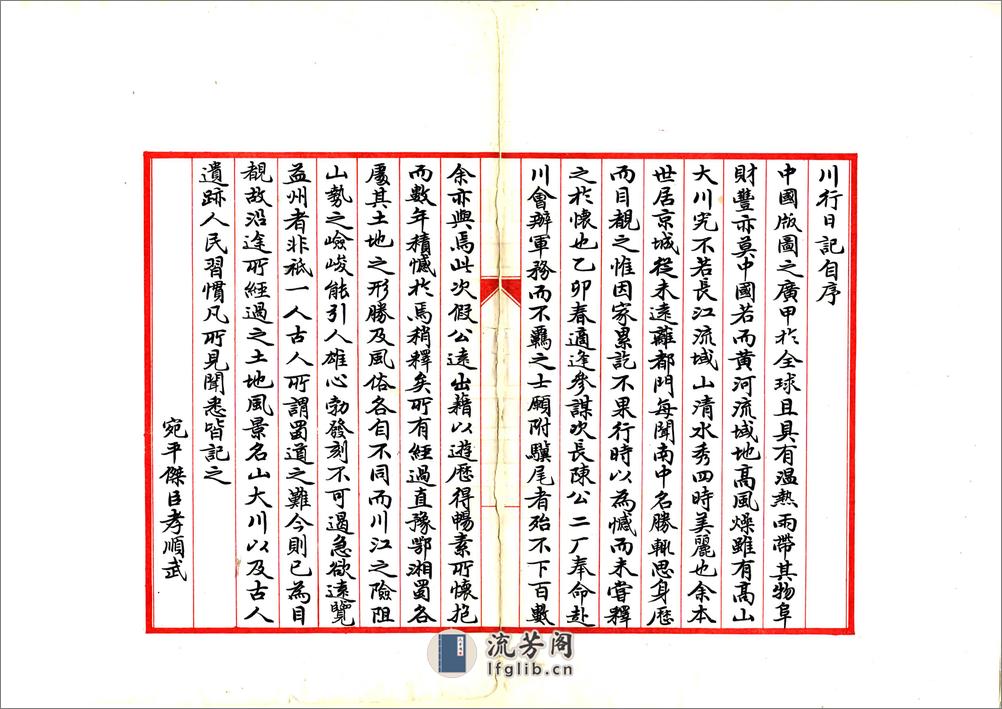 川行日記自序
中國版圖之廣甲於全球且具有溫熱雨帶其物阜
財豐亦莫中國若而黄河流域地高風燥雖有高山
大川究不若長江流域山清水秀四時美麗也余本
世居京城從未遠離都門每聞南中名勝輒思身歷
而目覩之惟因家累訖不果行時以為憾而未嘗釋
之於懷也乙卯春適逢參謀次長陳公二厂奉命赴
川會辦軍務而不羈之士願附驥尾者殆不下百數
余亦與焉此次假公遠出藉以遊歷得暢素所懷抱
而數年積憾於焉稍釋矣所有經過直豫鄂湘蜀各
處其土地之形勝及風俗各自不同而川江之險阻
山勢之嶮峻能引人雄心勃發刻不可遏急欲遠覽
益州者非祇一人古人所謂蜀道之難今則已為目
覩故沿途所經過之土地風景名山大川以及古人
遺跡人民習慣凡所見聞悉皆記之
宛平傑臣孝順武
流芳阁
lfglib.cn